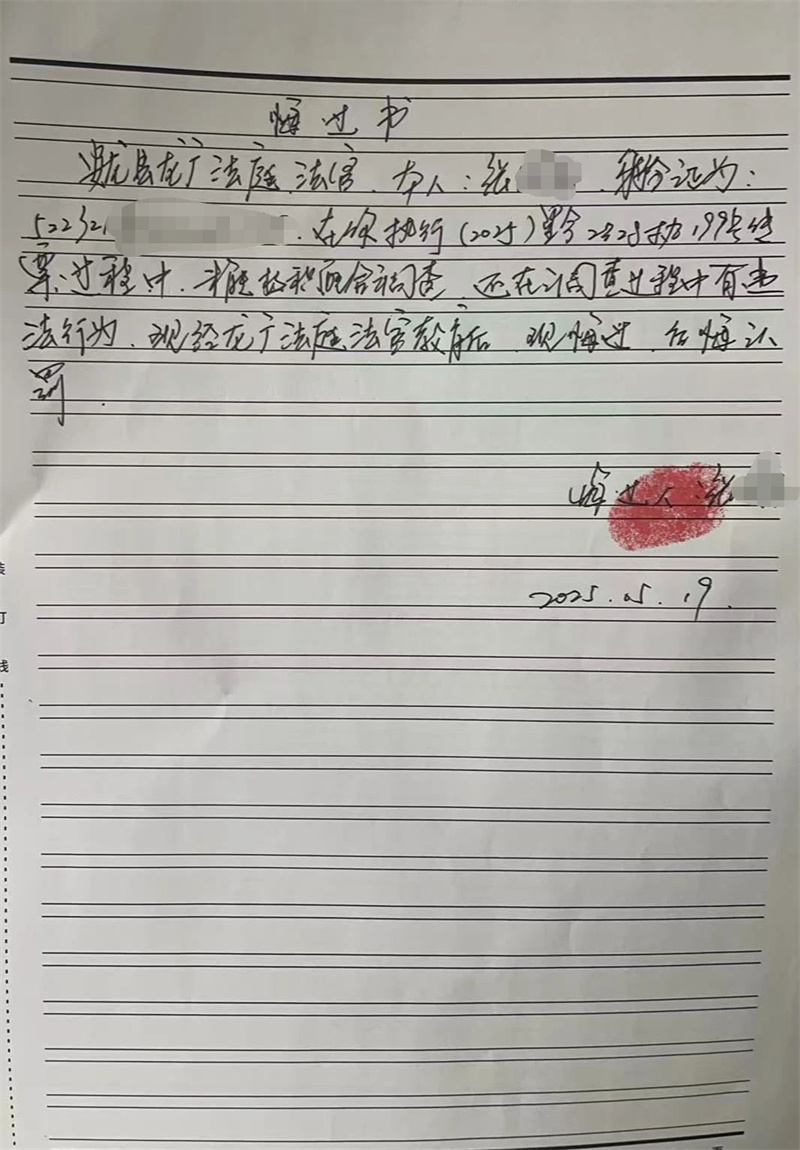 悔过书
安龙县龙广法庭法官、本人:张 、身份证为:
52232 . 在你执行(2025)黔2328执199号传
票过程中、未能积极配合调查、还在调查过程中有违
法行为、现经龙广法庭法官教育后、现悔过、后悔认
罚.
悔过人:张
2025.05.19.
装
订
线